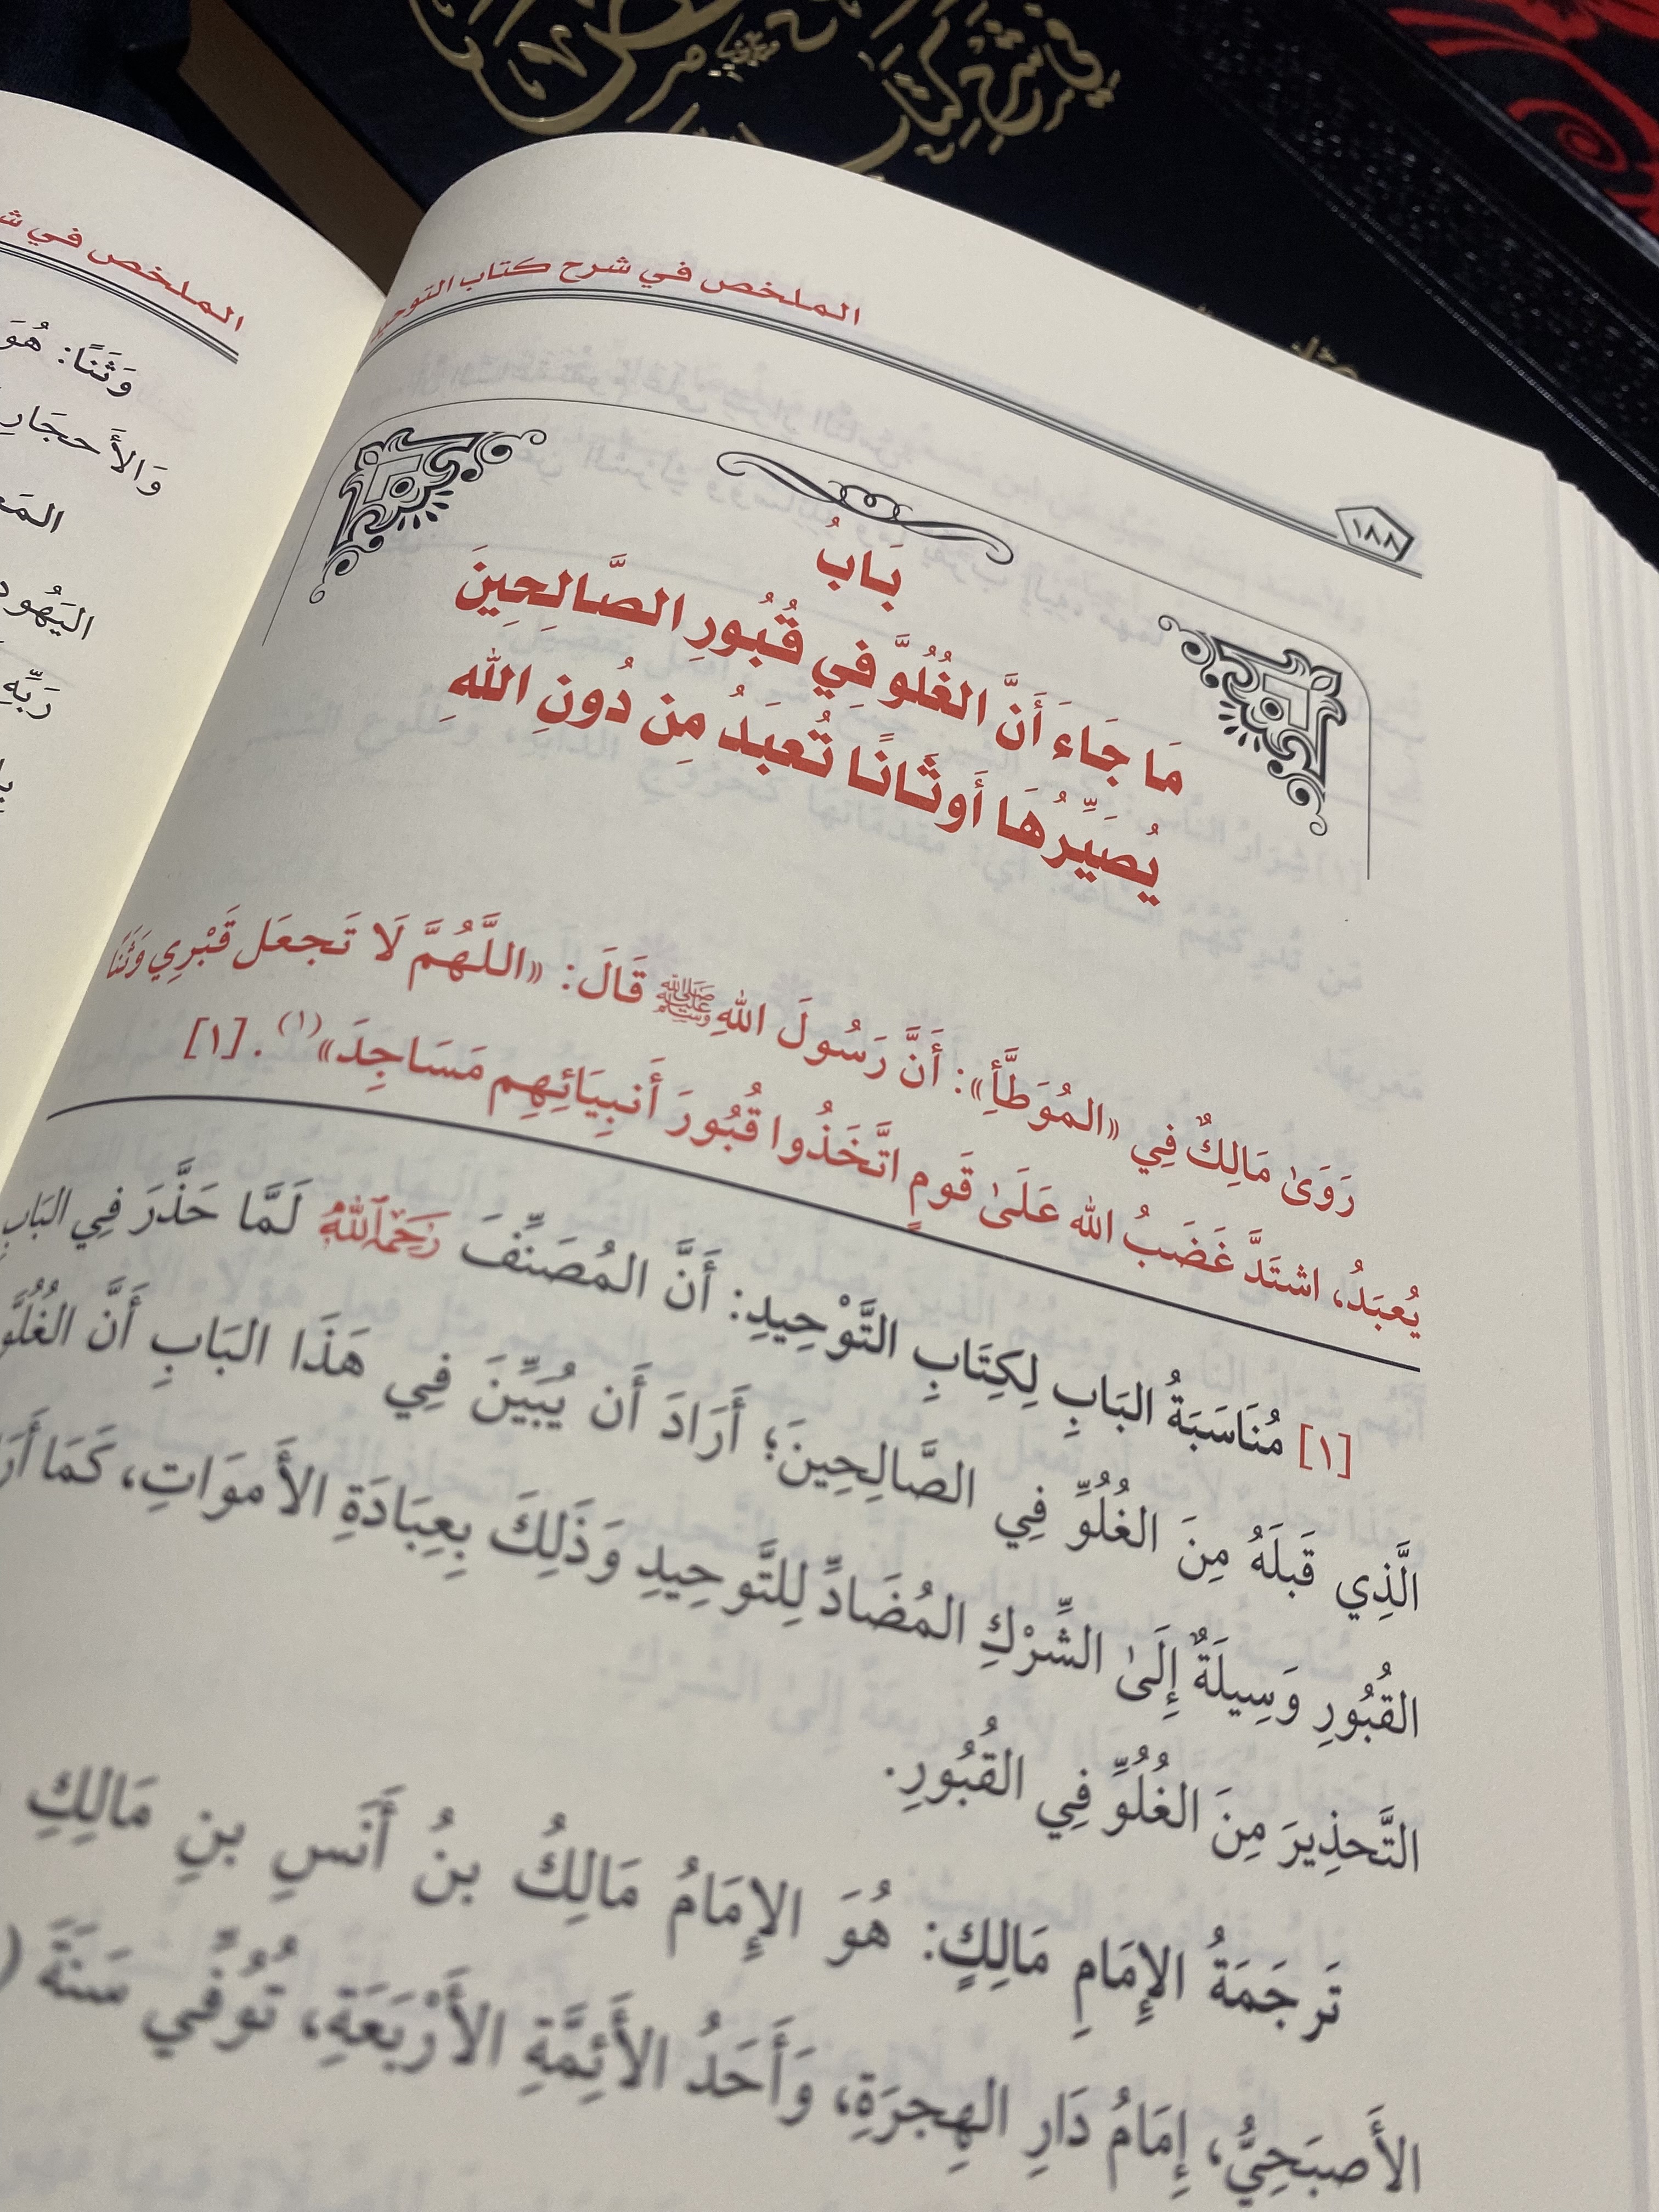 الملخص في شرح كتاب
١٨٨
بَابُ
مَا جَاءَ أَنَّ الغُلُوَّ فِي قُبُورِ الصَّالِحِينَ
يُصَيِّرُهَا أَوثَانًا تُعبَدُ مِن دُونِ اللهِ
رَوَىٰ مَالِكٌ فِي «المُوَطَّأِ»: أَنَّ رَسُولَ اللهِ ﷺ قَالَ: «اللَّهُمَّ لَا تَجعَل قَبْرِي وَثَنًا
يُعبَدُ، اشتَدَّ غَضَبُ الله عَلَىٰ قَومٍ اتَّخَذُوا قُبُورَ أَنبِيَائِهِم مَسَاجِدَ»(١). [١]
[١] مُنَاسَبَةُ البَابِ لِكِتَابِ التَّوْحِيدِ: أَنَّ المُصَنِّفَ رَحِمَهُ ٱللَّهُ لَمَّا حَذَّرَ فِي البَابِ
الَّذِي قَبلَهُ مِنَ الغُلُوِّ فِي الصَّالِحِينَ؛ أَرَادَ أَن يُبَيِّنَ فِي هَذَا البَابِ أَنَّ الغُلُوَّ
القُبُورِ وَسِيلَةٌ إِلَىٰ الشِّرْكِ المُضَادِّ لِلتَّوحِيدِ وَذَلِكَ بِعِبَادَةِ الأَموَاتِ، كَمَا
التَّحذِيرَ مِنَ الغُلُوِّ فِي القُبُورِ.
تَرجَمَةُ الإِمَامِ مَالِكٍ: هُوَ الإِمَامُ مَالِكُ بنُ أَنَسِ بنِ مَالِكِ
الأَصبَحِيُّ، إِمَامُ دَارِ الهِجرَةِ، وَأَحَدُ الأَئِمَّةِ الأَرْبَعَةِ، تُوُفِّي سَنَةَ
الملخص في
وَثَنًا: هُوَ
وَالأَحجَارِ
رَبِّهِ